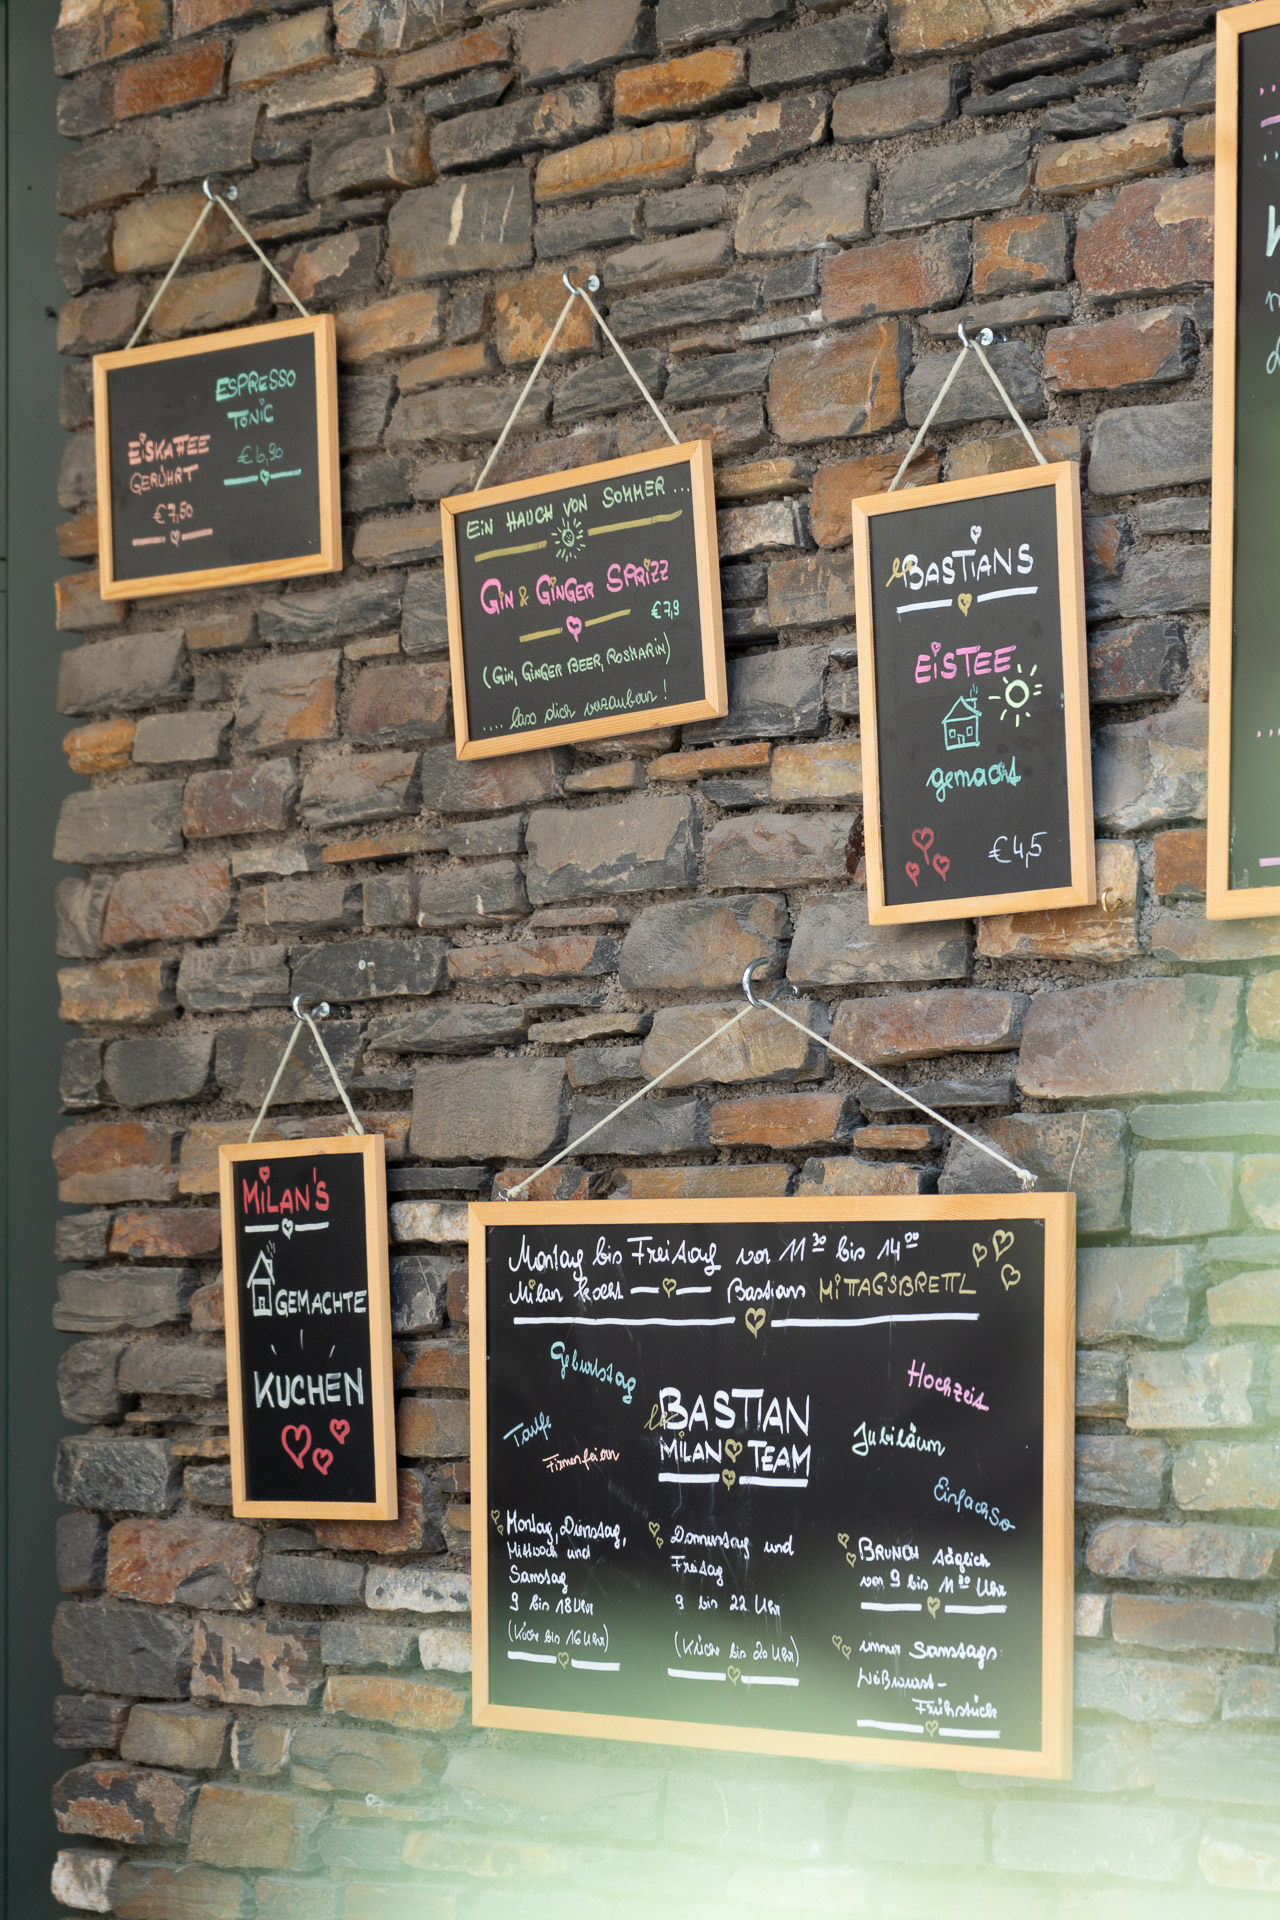 ESPRESSO
TONIC
€6,90
EISKAFFEE
GERÜHRT
€7,50
EIN HAUCH VON SOMMER ...
GIN & GINGER SPRIZZ
€7,9
(GIN, GINGER BEER, ROSMARIN)
.... lass dich verzaubern!
le BASTIANS
EISTEE
gemacht
€4,5
MILAN'S
GEMACHTE
KUCHEN
Montag bis Freitag von 11 30 bis 14 00
Milan kocht Bastians MITTAGSBRETTL
Geburtstag
Taufe
Firmenfeiern
le BASTIAN
MILAN TEAM
Hochzeit
Jubiläum
Einfach so
Montag, Dienstag,
Mittwoch und
Samstag
9 bis 18 Uhr
(Küche bis 16 Uhr)
Donnerstag und
Freitag
9 bis 22 Uhr
(Küche bis 20 Uhr)
BRUNCH täglich
von 9 bis 11 30 Uhr
immer Samstags
Weißwurst-
Frühstück